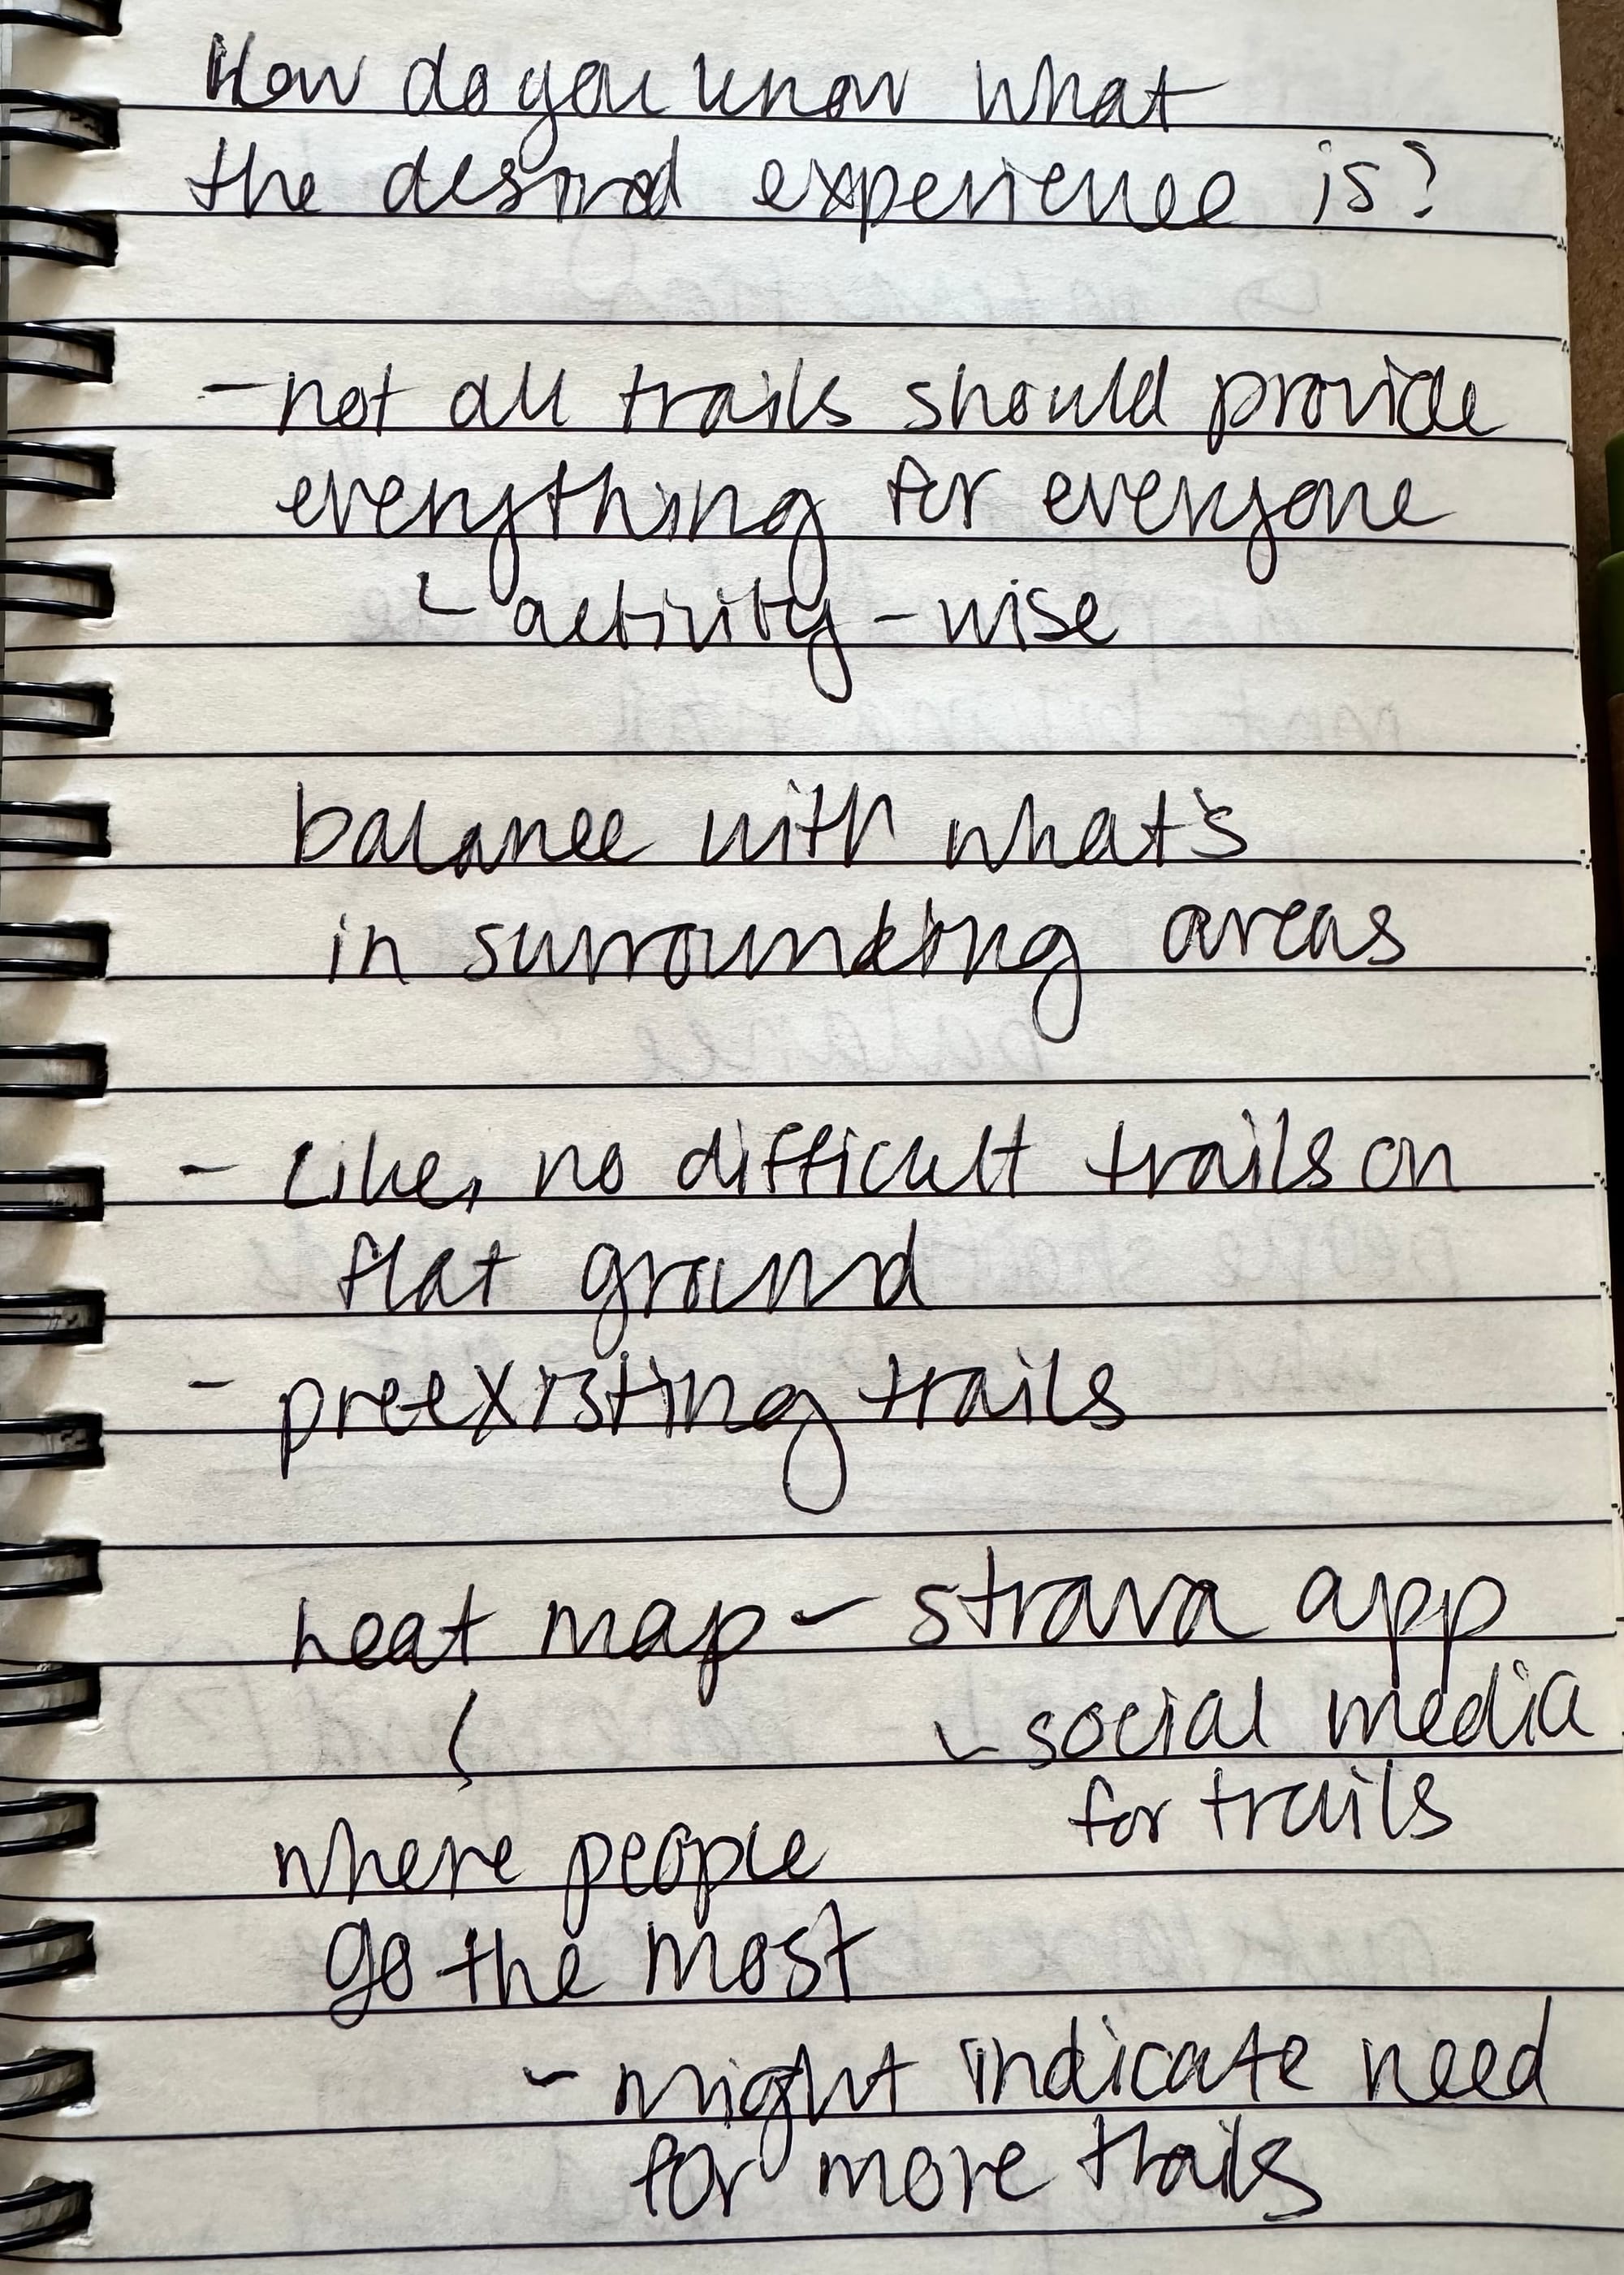 How do you know what
the desired experience is?
- not all trails should provide
everything for everyone
- activity-wise
balance with what's
in surrounding areas
- Like, no difficult trails on
flat ground
- preexisting trails
heat map - strava app
- social media
for trails
where people
go the most
- might indicate need
for more trails